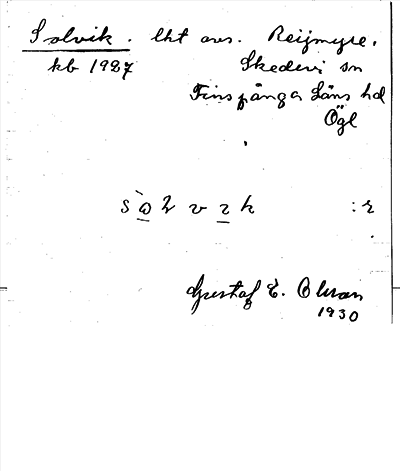 Solvik. lht avs. Reijmyre.
kb 1927 Skedevi sn
Finspånga Läns hd
Ögl
s v k : r
Gustaf E. Olsson
1930